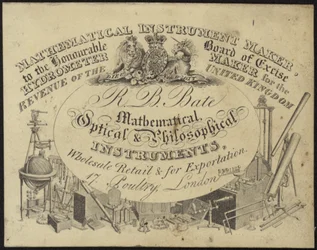 MATHEMATICAL INSTRUMENT MAKER,
to the Honourable Board of Excise
HYDROMETER MAKER for the
REVENUE OF THE UNITED KINGDOM
R. B. Bate
Mathematical,
Optical & Philosophical
INSTRUMENTS.
Wholesale Retail & for Exportation.
17, Poultry, London